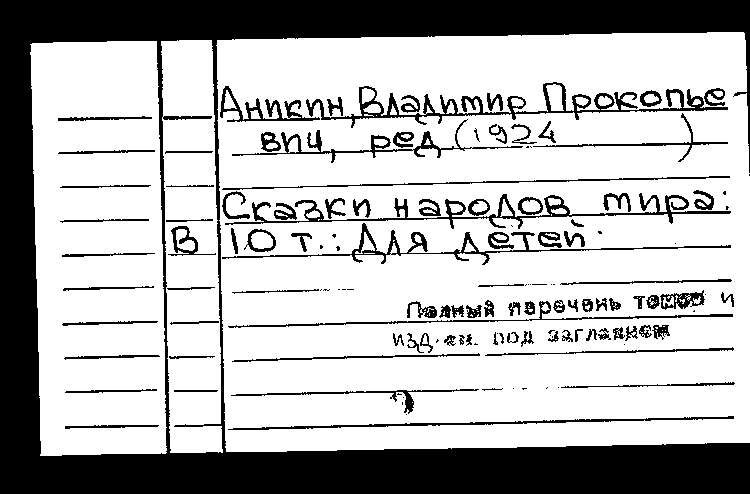 Аникин, Владимир Прокопье-
вич, ред (1924 )
Сказки народов мира:
В 10 т.: Для детей.
Полный перечень томов и
изд. см. под заглавием